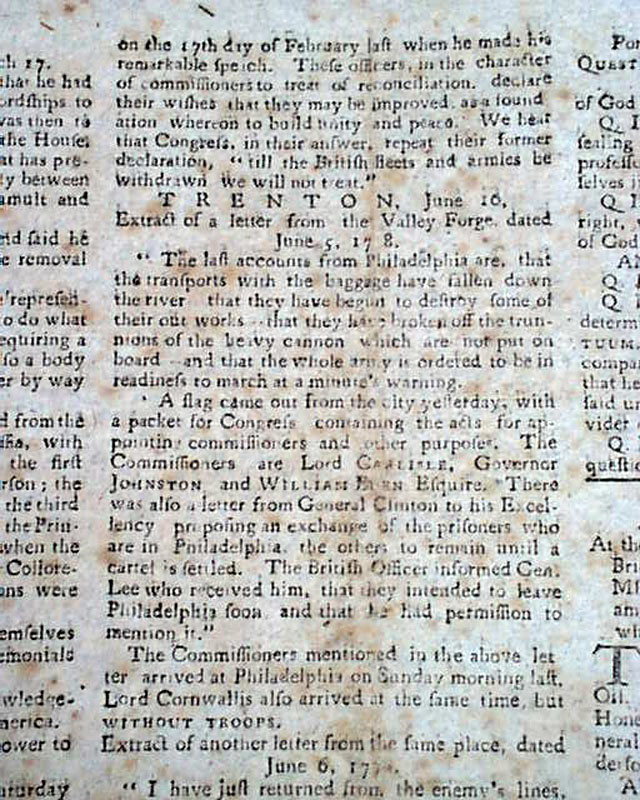 ch 17.
that he had
ordships to
was then to
the House,
at has pre-
ly between
amult and
eid said he
e removal
e'represen-
o do what
equiring a
so a body
er by way
d from the
sia, with
the first
rson ; the
the third
the Prin-
when the
Collore-
ons were
emselves
emonials
wledge-
merica.
power to
aturday
on the 17th day of February laſt when he made his
remarkable ſpeich. Theſe officers, in the character
of commiſſioners to treat of reconciliation. declare
their wiſhes that they may be improved. as a found
ation whereon to build unity and peace. We hear
that Congreſs, in their anſwer, repeat their former
declaration, "till the Britiſh fleets and armies be
withdrawn we will not treat."
TRENTON, June 16,
Extract of a letter from the Valley Forge, dated
June 5, 17 8.
" The laſt accounts from Philadelphia are, that
the tranſports with the baggage have fallen down
the river that they have begun to deſtroy ſome of
their out works --that they have broken off the trun-
nions of the heavy cannon which are not put on
board --and that the whole army is ordered to be in
readineſs to march at a minute's warning.
' A flag came out from the city yeſterday, with
a packet for Congreſs containing the acts for ap-
pointing commiſſioners and other purpoſes. The
Commiſſioners are Lord CARLISLE, Governor
JOHNSTON and WILLIAM EDEN Eſquire. There
was alſo a letter from General Clinton to his Excel-
lency propoſing an exchange of the priſoners who
are in Philadelphia, the others to remain until a
cartel is ſettled. The Britiſh Officer informed Gen.
Lee who received him, that they intended to leave
Philadelphia ſoon and that he had permiſſion to
mention it."
The Commiſſioners mentioned in the above let
ter arrived at Philadelphia on Sunday morning laſt.
Lord Cornwallis alſo arrived at the ſame time, but
WITHOUT TROOPS.
Extract of another letter from the ſame place, dated
June 6, 177 .
" I have juſt returned from the enemy's lines,
For
QUEST
of God
Q. I
ſealing
profeſſe
ſelves i
Q. I
right, v
of God
AN
Q. I
Q.
determ
TUUM.
compar
that he
ſaid un
vider
Q.
queſtio
At the
Bri
MI
am
wh
T
Oil.
Hone
neral
A